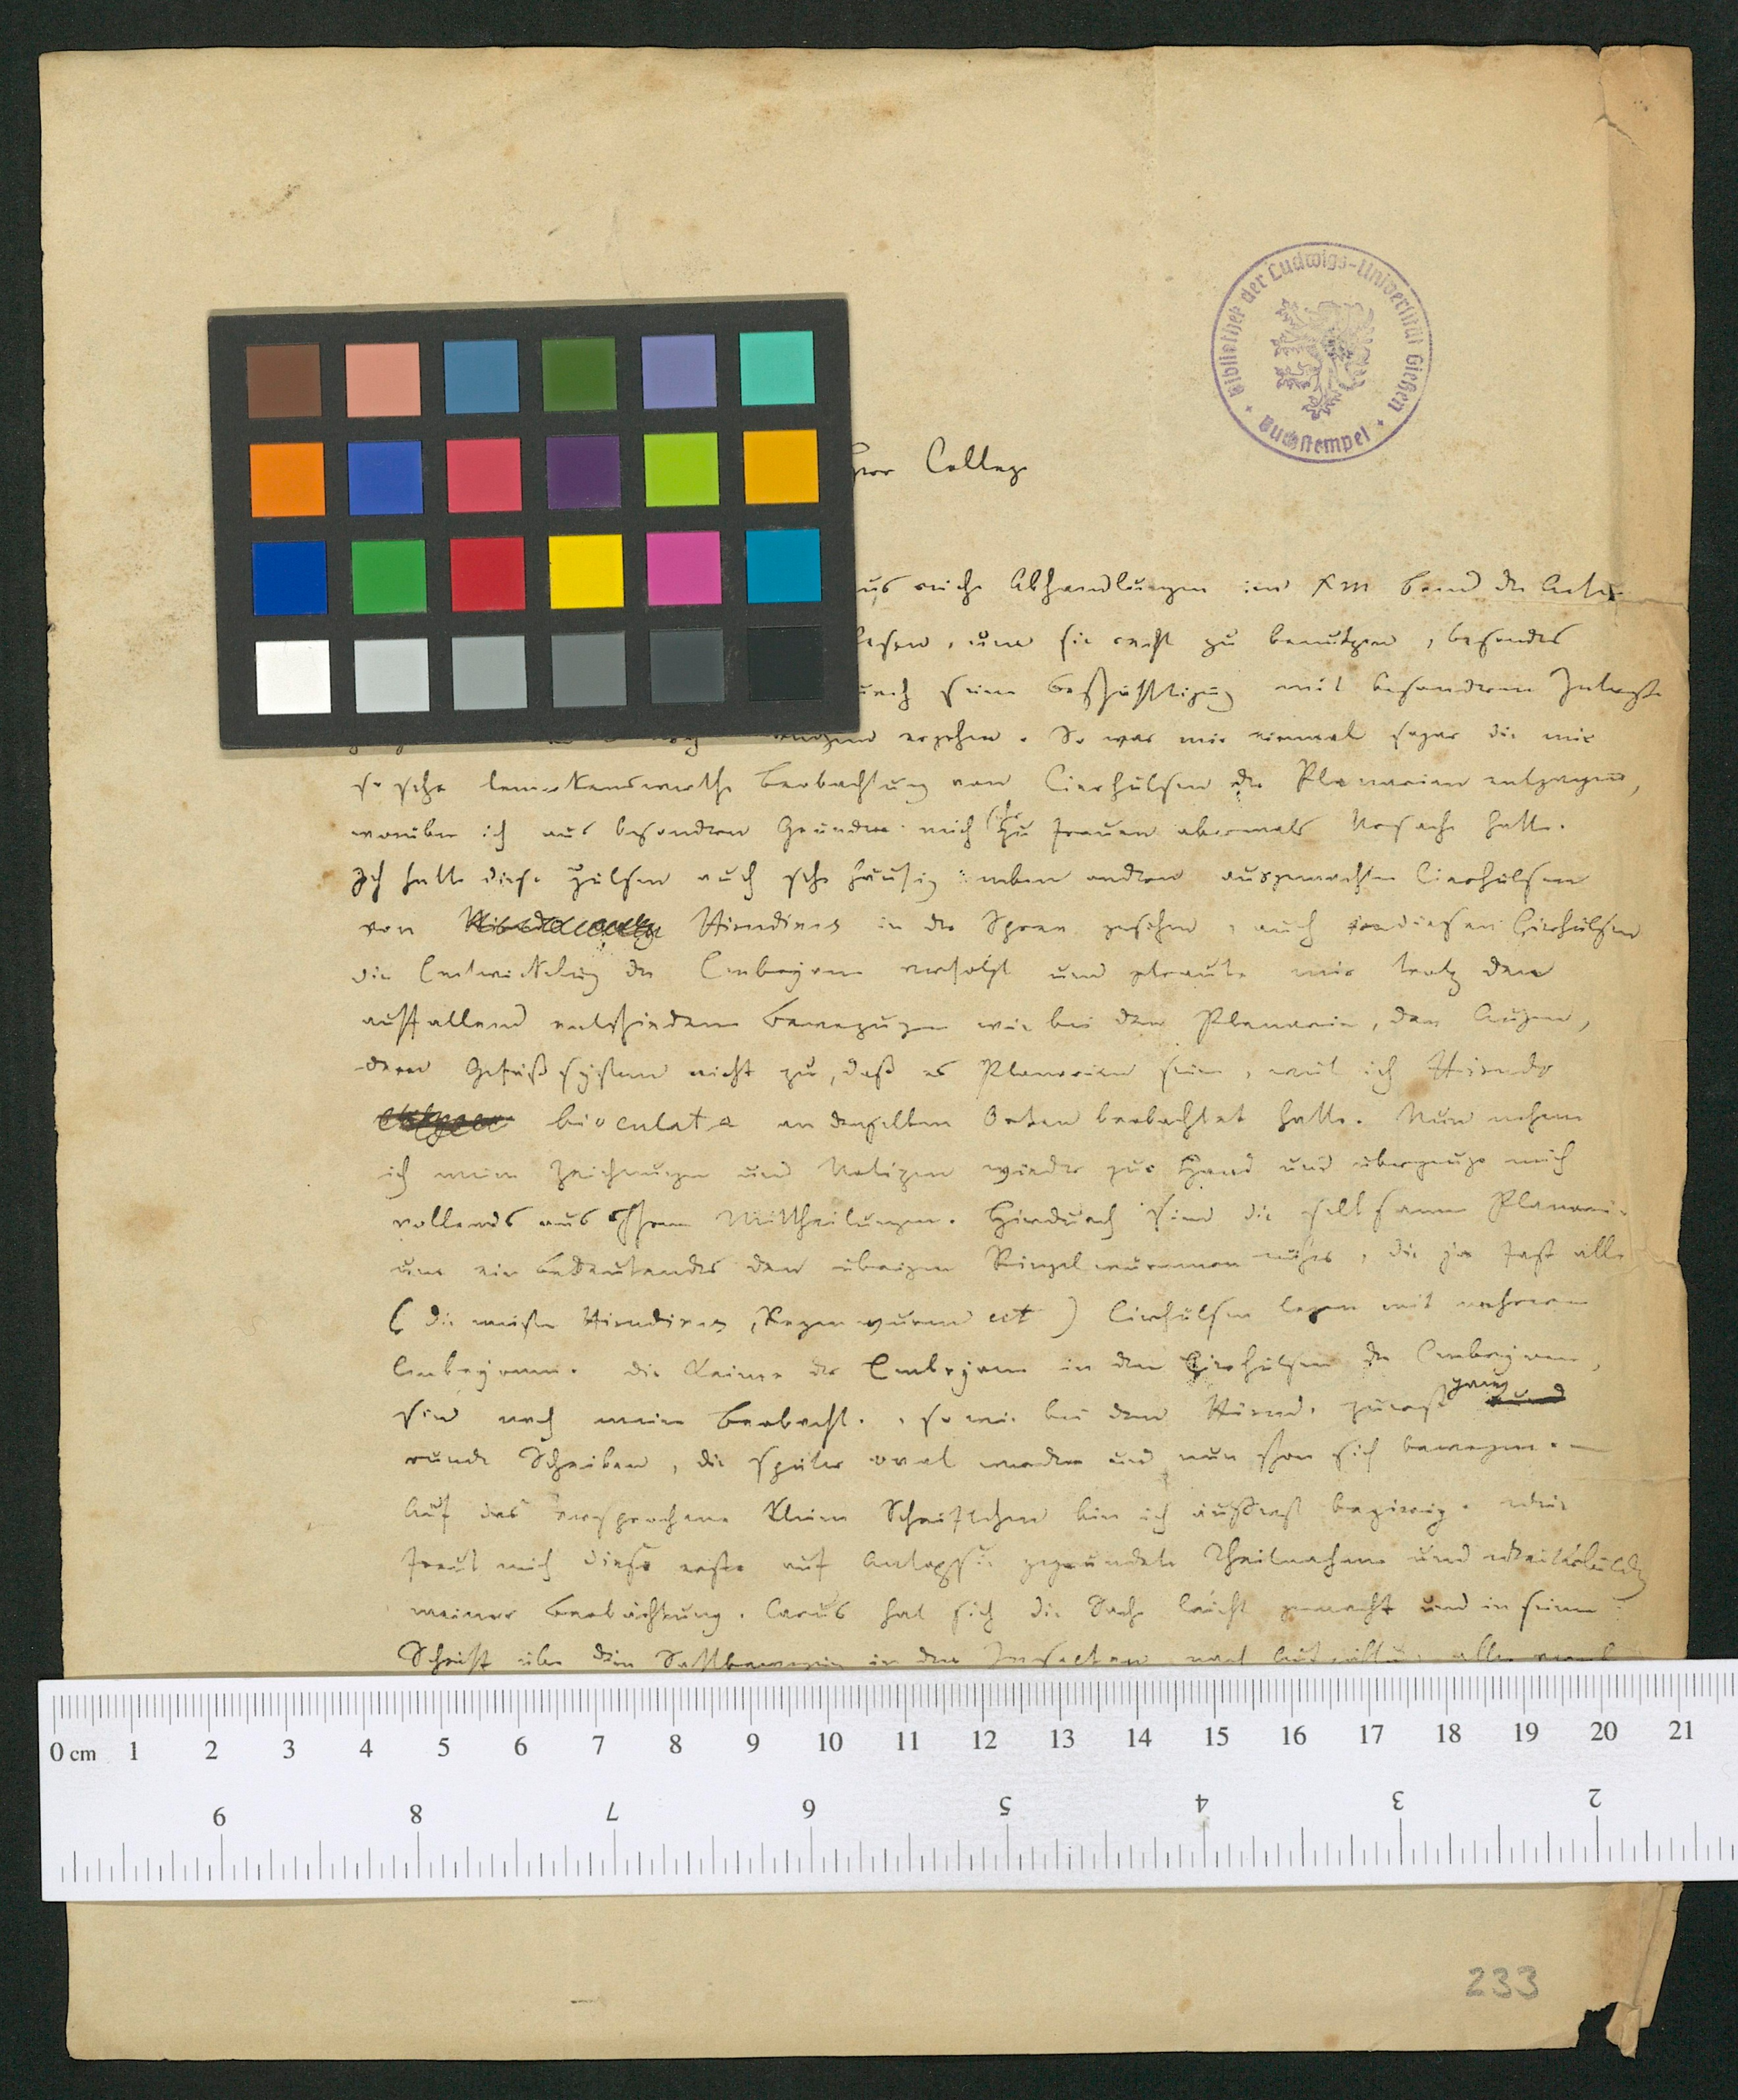 Bibliothek der Ludwigs-Universität Gießen
Buchstempel
Herr College
reiche Abhandlungen im Xm Band der
lesen, um sie recht zu benutzen, besonders
durch seine Beschäftigung mit besonderem Interesse
entgehen. So war mir einmal sogar die mir
so sehr bemerkenswerthe Beobachtung von Eierhülsen der Planarien entgangen,
worüber ich aus besondren Gründen mich sehr zu freuen abermals Ursache hatte.
Ich hatte diese Hülsen auch sehr häufig neben andren ausgemachten Eierhülsen
von Hirudines in der Spree gesehen, auch in diesen Eierhülsen
die Entwickelung der Embryonen verfolgt und getraute mir trotz den
auffallend entschiedenen Bewegungen wie bei den Planarien, den Augen,
dem Gefäßsystem nicht zu, daß es Planarien seien, weil ich Hirudo
bioculata an denselben Orten beobachtet hatte. Nun nehme
ich meine Zeichnungen und Notizen wieder zur Hand und überzeuge mich
vollends aus Ihren Mittheilungen. Hierdurch sind die seltsamen Planarien
um ein Bedeutendes den übrigen Ringelwürmern näher, die ja fast alle
(die meisten Hirudines, Regenwürmer ect) Eierhülsen legen mit mehreren
Embryonen. Die Keime der Embryonen in den Eierhülsen der Embryonen,
sind nach meiner Beobacht., so wie bei den Hirud. zuerst ganz
runde Scheiben, die später oval werden und nun schon sich bewegen.
Auf das versprochene kleine Schriftchen bin ich äußerst begierig. Mir
freut mich diese erste auf Autopsie gegründete Theilnahme und
meiner Beobachtung. Carus hat sich die Sache leicht gemacht und in seiner
Schrift über den Saftbewegung in den Insecten
0 cm 1 2 3 4 5 6 7 8 9 10 11 12 13 14 15 16 17 18 19 20 21
9 8 7 6 5 4 3 2
233